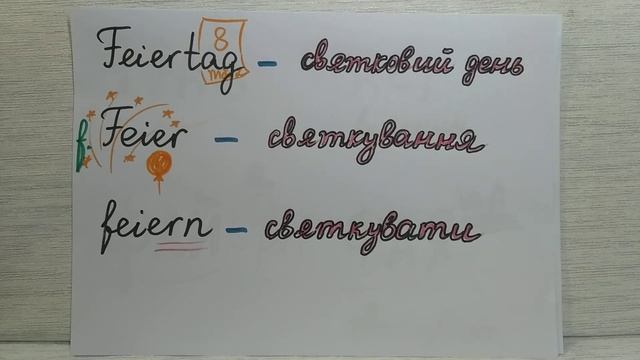 Feiertag - святковий день
8
März
f. Feier - святкування
feiern - святкувати